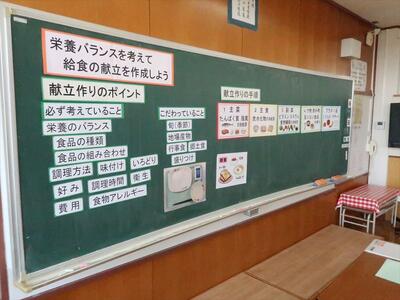 栄養バランスを考えて
給食の献立を作成しよう
献立作りのポイント
必ず考えていること
栄養のバランス
食品の種類
食品の組み合わせ
調理方法 味付け いろどり
好み 調理時間 衛生
費用 食物アレルギー
こだわっていること
旬(季節)
地場産物
行事食 郷土食
盛りつけ
献立作りの手順
1 主菜
たんぱく質 脂質
2 主食
炭水化物
3 副菜